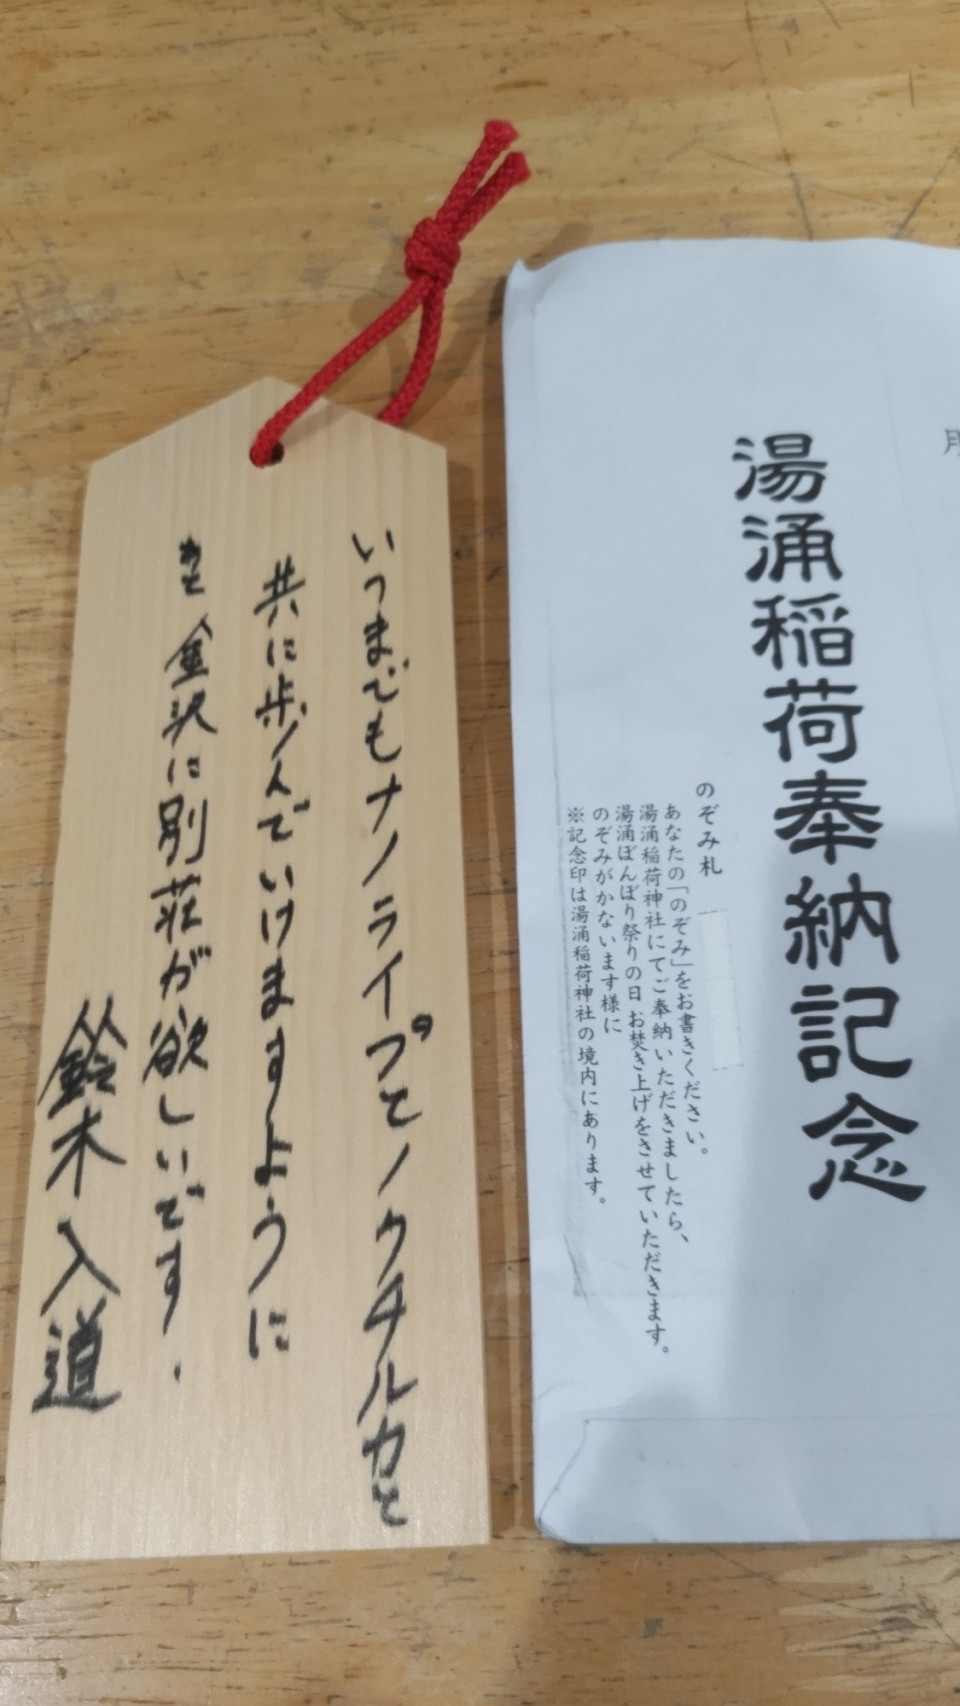 湯涌稲荷奉納記念
のぞみ札
あなたの「のぞみ」をお書きください。
湯涌稲荷神社にてご奉納いただきましたら、
湯涌ぼんぼり祭りの日 お焚き上げをさせていただきます。
のぞみがかないます様に
※記念印は湯涌稲荷神社の境内にあります。
いつまでもナノライプとノウチルカと
共に歩んでいけますように
あと金沢に別荘が欲しいです.
鈴木入道